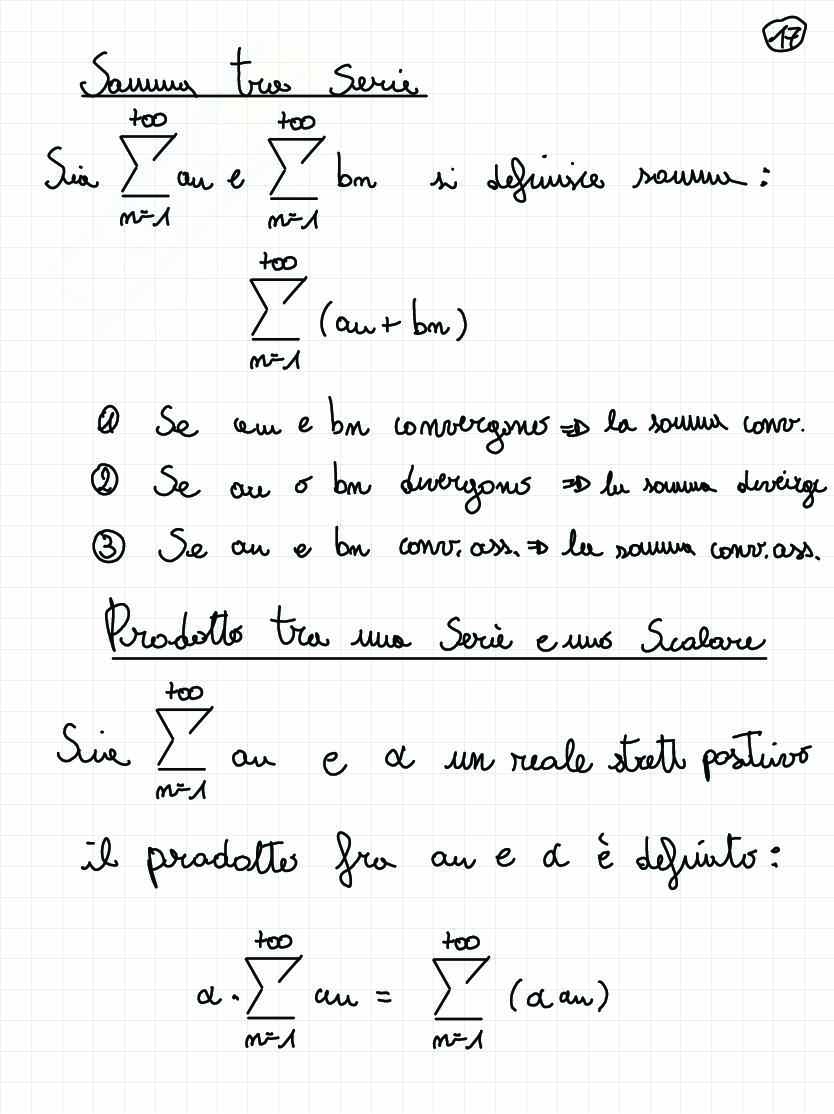 17
Somma tra Serie
Sia $\sum_{n=1}^{+\infty} a_n$ e $\sum_{n=1}^{+\infty} b_n$ si definisce somma :
$\sum_{n=1}^{+\infty} (a_n + b_n)$
① Se an e bn convergono ⇒ la somma conv.
② Se an o bn divergono ⇒ la somma diverge
③ Se an e bn conv. ass. ⇒ la somma conv. ass.
Prodotto tra una Serie e uno Scalare
Sia $\sum_{n=1}^{+\infty} a_n$ e α un reale strett positivo
il prodotto fra an e α è definito :
$\alpha \cdot \sum_{n=1}^{+\infty} a_n = \sum_{n=1}^{+\infty} (\alpha a_n)$